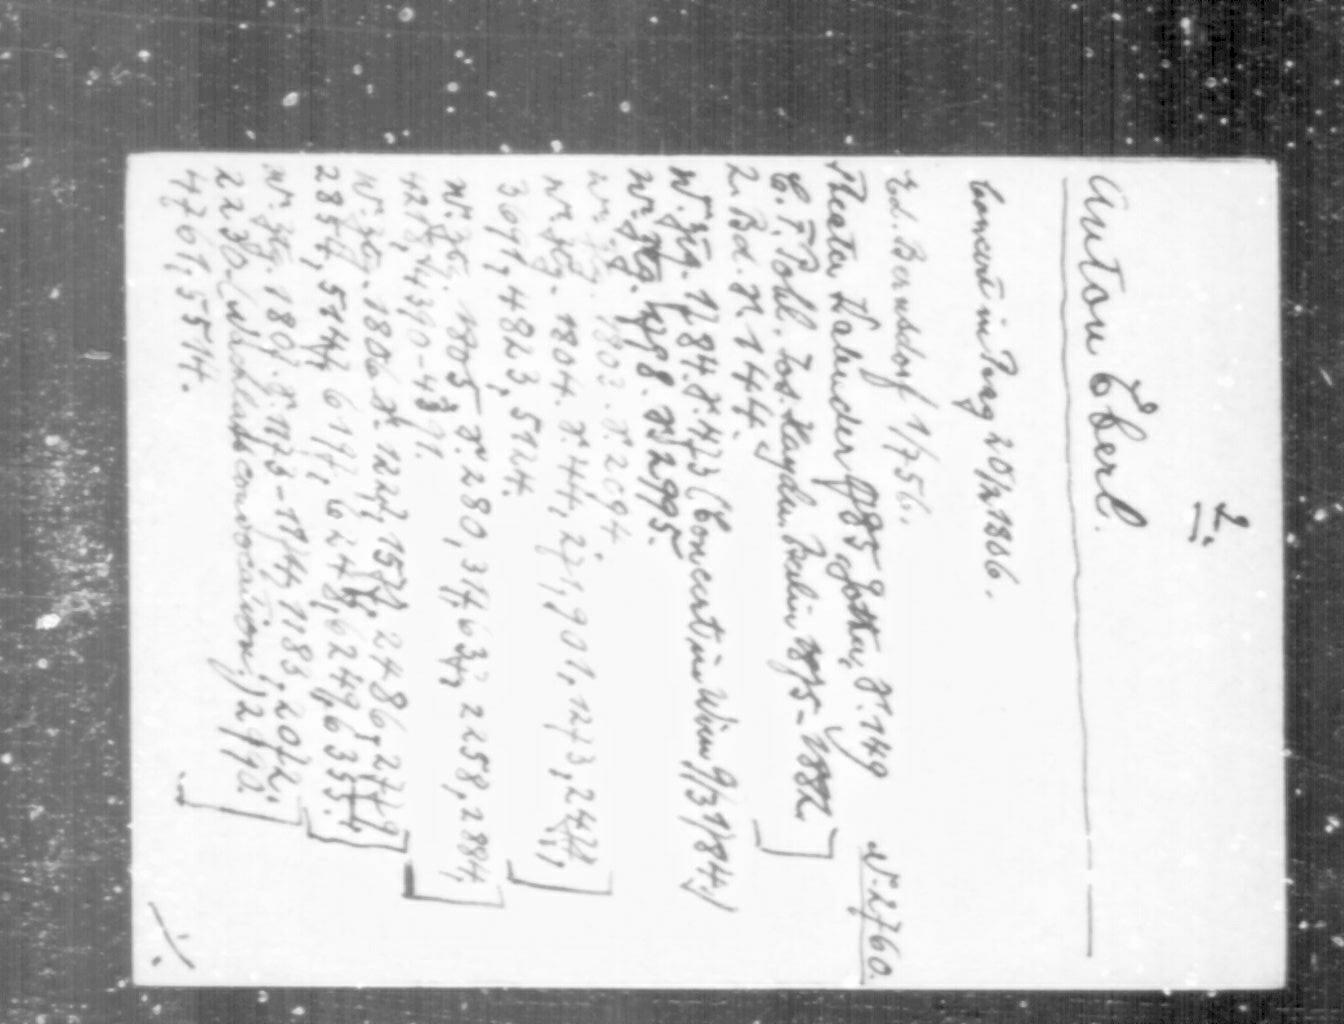 2.
Anton Eberl.
Concert in Prag 20/2 1806.
Ed. Bernsdorf 1/756.
Theater Kalender 1785 Gotha, S. 149 N. 2760.
C. F. Pohl. Jos. Haydn. Berlin 1875-1882.
2. Bd. S. 144.
W. Ztg. 1784. S. 473 (Concert in Wien 9/3 1784)
W. Ztg. 1798. S. 2995.
W. Ztg. 1803. S. 2694.
W. Ztg. 1804. S. 44, 271, 901, 1273,
3691, 4823, 5124.
W. Ztg. 1805. S. 280, 2258, 2884,
4390-4391.
W. Ztg. 1806 S. 2486,
6248, 6249, 6355.
W. Ztg. 1807. S. 1173-1174, 1183, 2072,
2230 (Verlassconvocation)
4761, 5514.